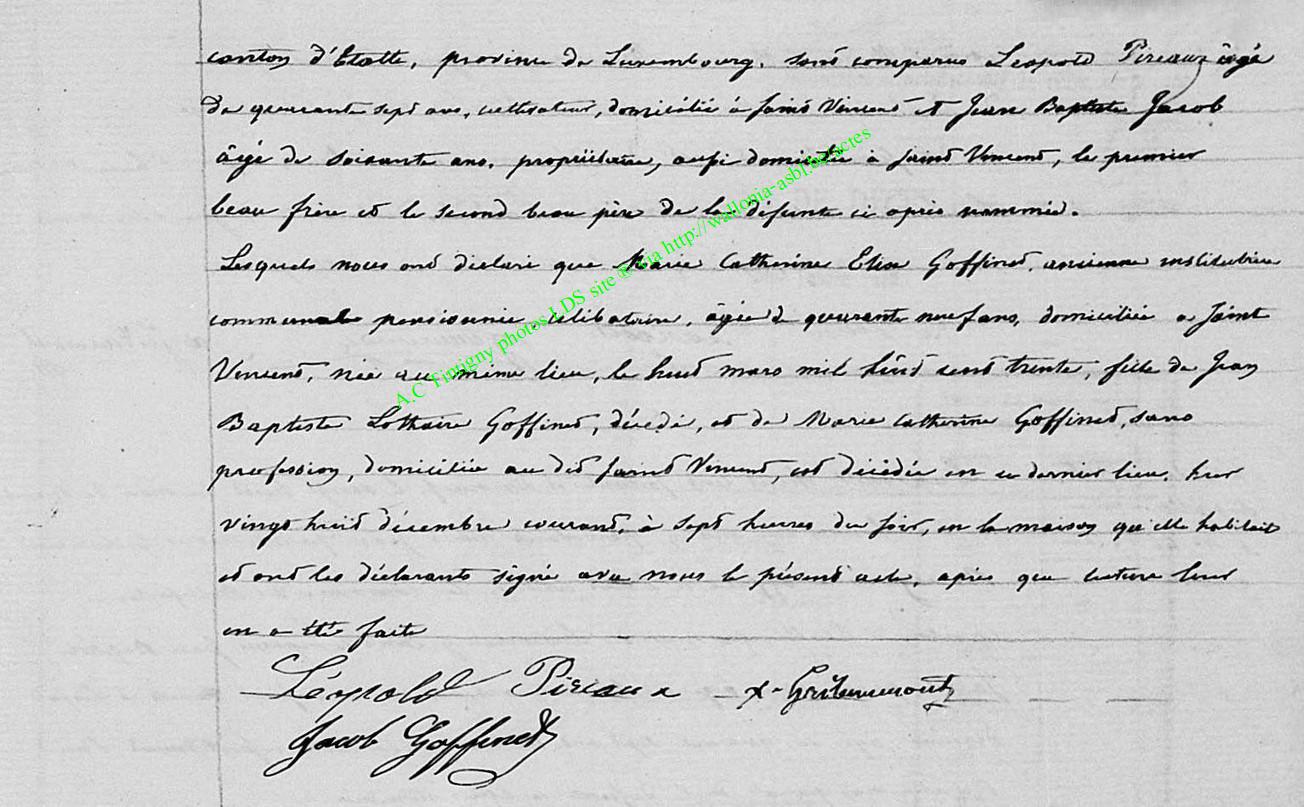 canton d'Etalle, province de Luxembourg. sont comparus Léopold Pireaux âgé
de quarante sept ans, cultivateur, domicilié à Saint Vincent et Jean Baptiste Jacob
âgé de soixante ans, propriétaire, aussi domicilié à Saint Vincent, le premier
beau frère et le second beau père de la défunte ci après nommée.
Lesquels nous ont déclaré que Marie Catherine Elise Goffinet, ancienne institutrice
communale pensionnée, célibataire, âgée de quarante neuf ans, domiciliée à Saint
Vincent, née au même lieu, le huit mars mil huit cent trente, fille de Jean
Baptiste Lothaire Goffinet, décédé, et de Marie Catherine Goffinet, sans
profession, domiciliée au dit Saint Vincent, est décédée en ce dernier lieu, hier
vingt huit décembre courant, à sept heures du soir, en la maison qu'elle habitait
et ont les déclarants signé avec nous le présent acte, après que lecture leur
en a été faite
Léopold Pireaux
Jacob Goffinet
A.C Tintigny photos LDS site @ via http://wallonia-asbl.be/actes